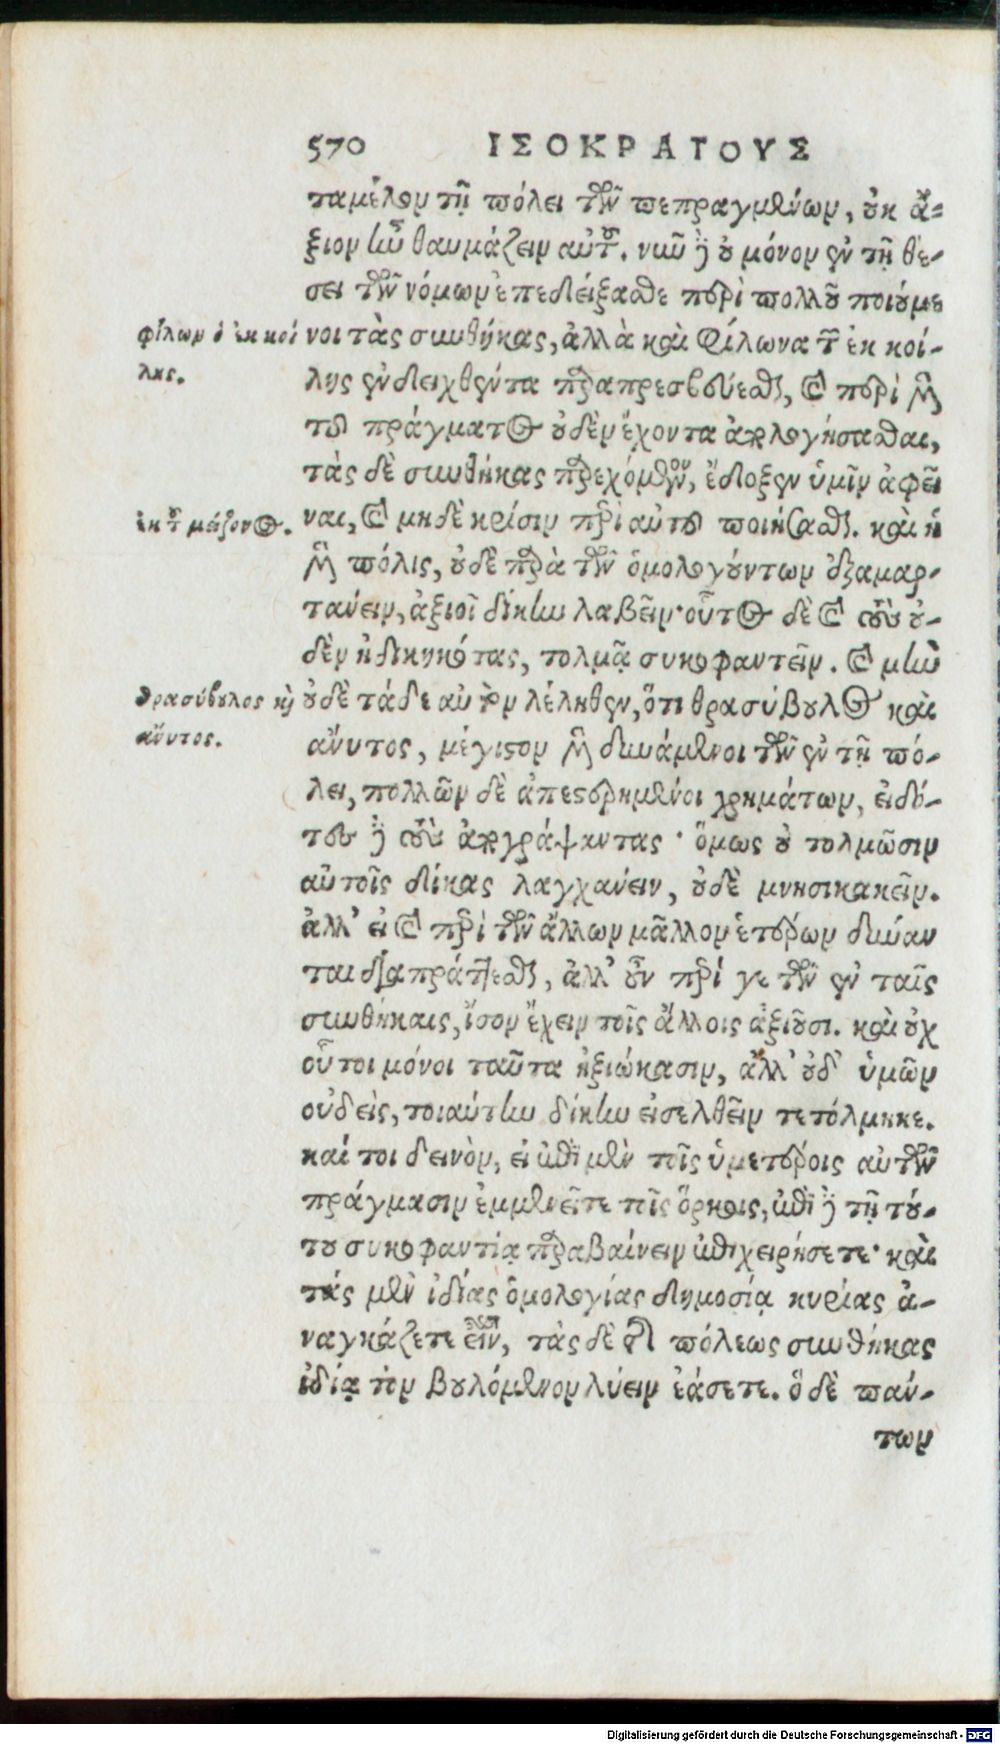 570 ΙΣΟΚΡΑΤΟΥΣ
ταμέλον τῇ πόλει τῶν πεπραγμένων, οὐκ ἄ-
ξιον ἦν θαυμάζειν αὐτοῦ. νῦν δὲ οὐ μόνον ἐν τῇ θέ-
σει τῶν νόμων ἐπεδείξασθε περὶ πολλοῦ ποιούμε
νοι τὰς συνθήκας, ἀλλὰ καὶ Φίλωνα τὸν ἐκ κοί-
λης ἐνδειχθέντα παραπρεσβεύεσθαι, καὶ περὶ μὲν
τοῦ πράγματος οὐδὲν ἔχοντα ἀπολογήσασθαι,
τὰς δὲ συνθήκας παρεχόμενον, ἔδοξεν ὑμῖν ἀφεῖ
ναι, καὶ μηδὲ κρίσιν περὶ αὐτοῦ ποιήσασθαι. καὶ ἡ
μὲν πόλις, οὐδὲ παρὰ τῶν ὁμολογούντων ἐξαμαρ-
τάνειν, ἀξιοῖ δίκην λαβεῖν· οὗτος δὲ καὶ τοὺς οὐ-
δὲν ἠδικηκότας, τολμᾷ συκοφαντεῖν. καὶ μὴν
οὐδὲ τάδε αὐτὸν λέληθεν, ὅτι θρασύβουλος καὶ
ἄνυτος, μέγιστον μὲν δυνάμενοι τῶν ἐν τῇ πό-
λει, πολλῶν δὲ ἀπεστερημένοι χρημάτων, εἰδό-
τες δὲ τοὺς ἀπογράψαντας· ὅμως οὐ τολμῶσιν
αὐτοῖς δίκας λαγχάνειν, οὐδὲ μνησικακεῖν.
ἀλλ' εἰ καὶ περὶ τῶν ἄλλων μᾶλλον ἑτέρων δύναν
ται διαπράττεσθαι, ἀλλ' οὖν περί γε τῶν ἐν ταῖς
συνθήκαις, ἴσον ἔχειν τοῖς ἄλλοις ἀξιοῦσι. καὶ οὐχ
οὗτοι μόνοι ταῦτα ἠξιώκασιν, ἀλλ' οὐδ' ὑμῶν
οὐδεὶς, τοιαύτην δίκην εἰσελθεῖν τετόλμηκε.
καί τοι δεινὸν, εἰ ἐπὶ μὲν τοῖς ὑμετέροις αὐτῶν
πράγμασιν ἐμμενεῖτε τοῖς ὅρκοις, ἐπὶ δὲ τῇ τού-
του συκοφαντίᾳ παραβαίνειν ἐπιχειρήσετε· καὶ
τάς μὲν ἰδίας ὁμολογίας δημοσίᾳ κυρίας ἀ-
ναγκάζετε εἶναι, τὰς δὲ τῆς πόλεως συνθήκας
ἰδίᾳ τὸν βουλόμενον λύειν ἐάσετε. ὃ δὲ πάν-
των
φίλων ὁ ἐκ κοί
λης.
θρασύβουλος καὶ
ἄνυτος.
Digitalisierung gefördert durch die Deutsche Forschungsgemeinschaft - DFG